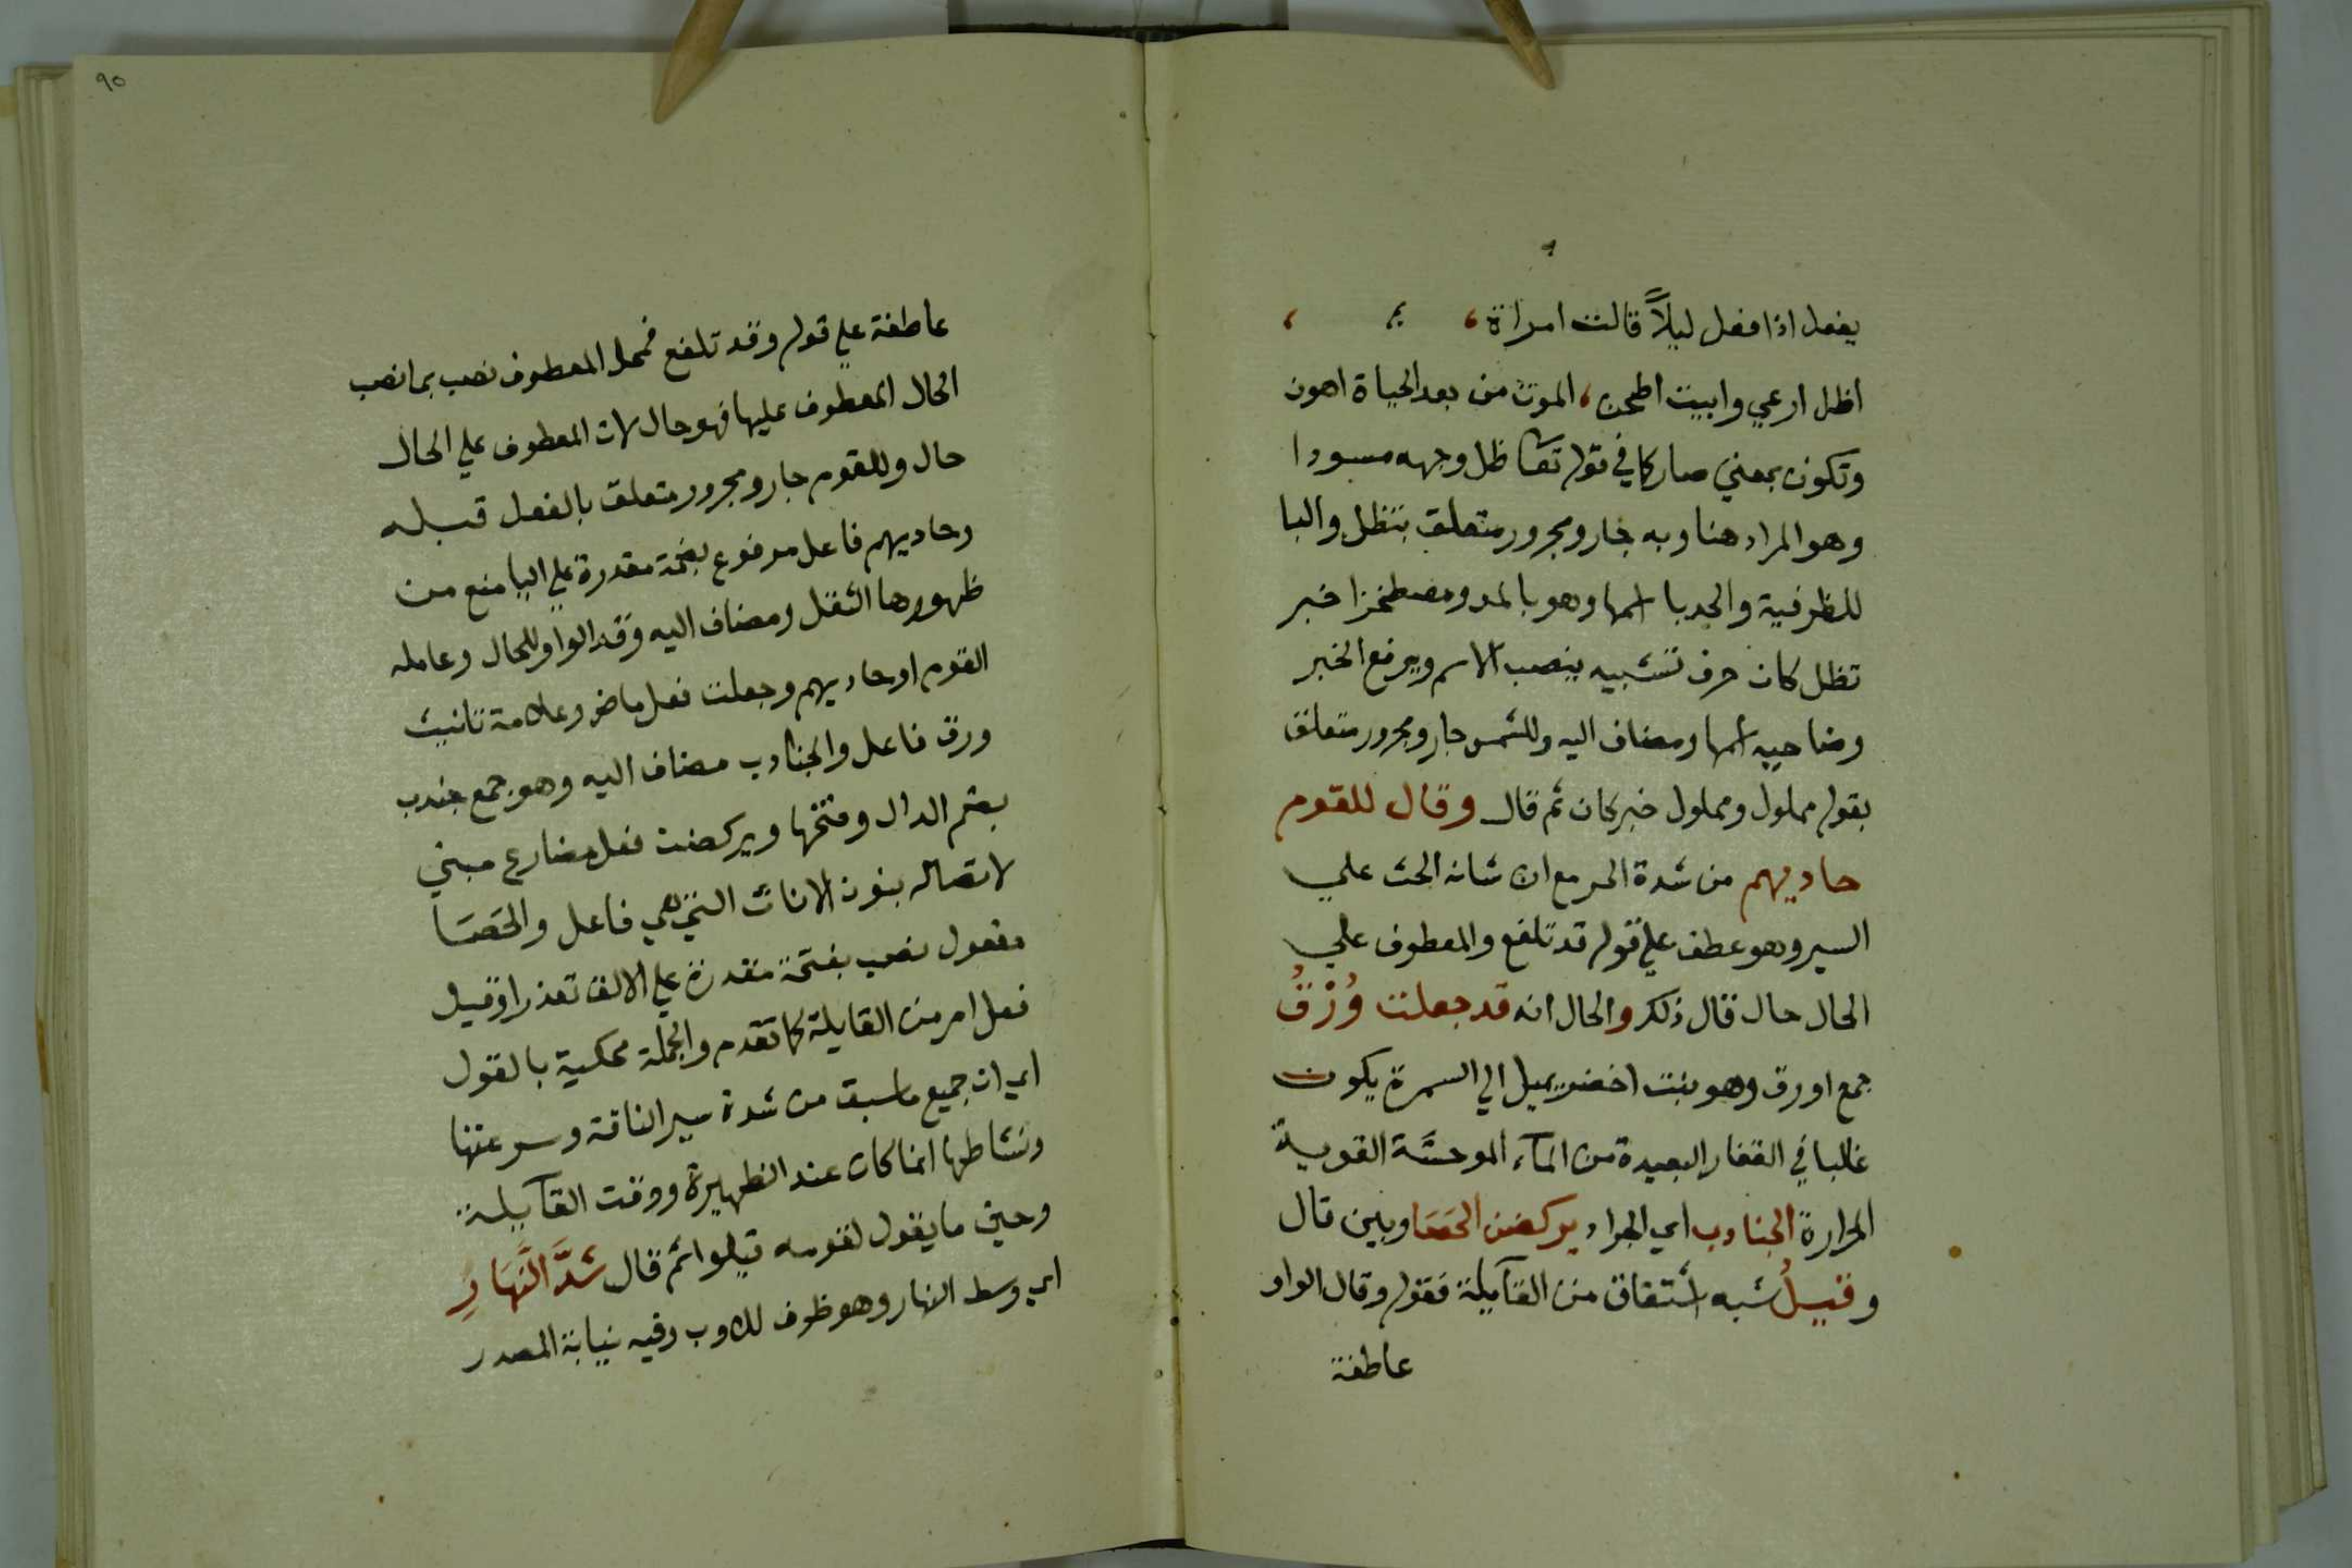 يفعل اذا فعل ليلاً قالت امراة
اظل ارعي وابيت اطحن، الموت من بعد الحياة اهون
وتكون بمعني صار كما في قوله تعا ظل وجهه مسودا
وهو المراد هنا وبه جار ومجرور متعلق بتظل والبا
للظرفية والحربا اسمها وهو بالمد ومصطخزا خبر
تظل كان حرف تشبيه ينصب الاسم ويرفع الخبر
وضاحيه اسمها ومضاف اليه وللشمس جار ومجرور متعلق
بقوله مملول ومملول خبر كان ثم قال وقال للقوم
حاديهم من شدة الحر مع ان شانه الحث علي
السير وهو عطف علي قوله قد تلفع والمعطوف علي
الحال حال قال ذلك والحال انه قد جعلت وُرْقُ
جمع اورق وهو نبت اخضر يميل الي السمرة يكون
غالبا في القفار البعيدة من المآء الموحشة القوية
الحرارة الجنادب اي الجراد يركضن الحصا وبين قال
وقيلُ شبه اشتقاق من القآيلة فقوله وقال الواو
عاطفة
٩٥
عاطفة علي قوله وقد تلفع فمحل المعطوف نصب بما نصب
الحال المعطوف عليها فهو حال لان المعطوف علي الحال
حال وللقوم جار ومجرور متعلق بالفعل قبله
وحاديهم فاعل مرفوع بضمة مقدرة علي اليا منع من
ظهورها الثقل ومضاف اليه وقد الواو للحال وعامله
القوم او حاديهم وجعلت فعل ماض وعلامة تانيث
ورق فاعل والجنادب مضاف اليه وهو جمع جندب
بضم الدال وفتحها ويركضن فعل مضارع مبني
لاتصاله بنون الاناث التي هي فاعل والحَصَا
مفعول نصب بفتحة مقدرة علي الالف تعذرا وقيل
فعل امر من القايلة كما تقدم والجملة محكية بالقول
اي ان جميع ما سبق من شدة سير الناقة وسرعتها
ونشاطها انما كان عند الظهيرة ووقت القآيلة
وحين ما يقول لقومه قيلوا ثم قال شَدَّ النَّهَارِ
اي وسط النهار وهو ظرف للاوب وفيه نيابة المصدر